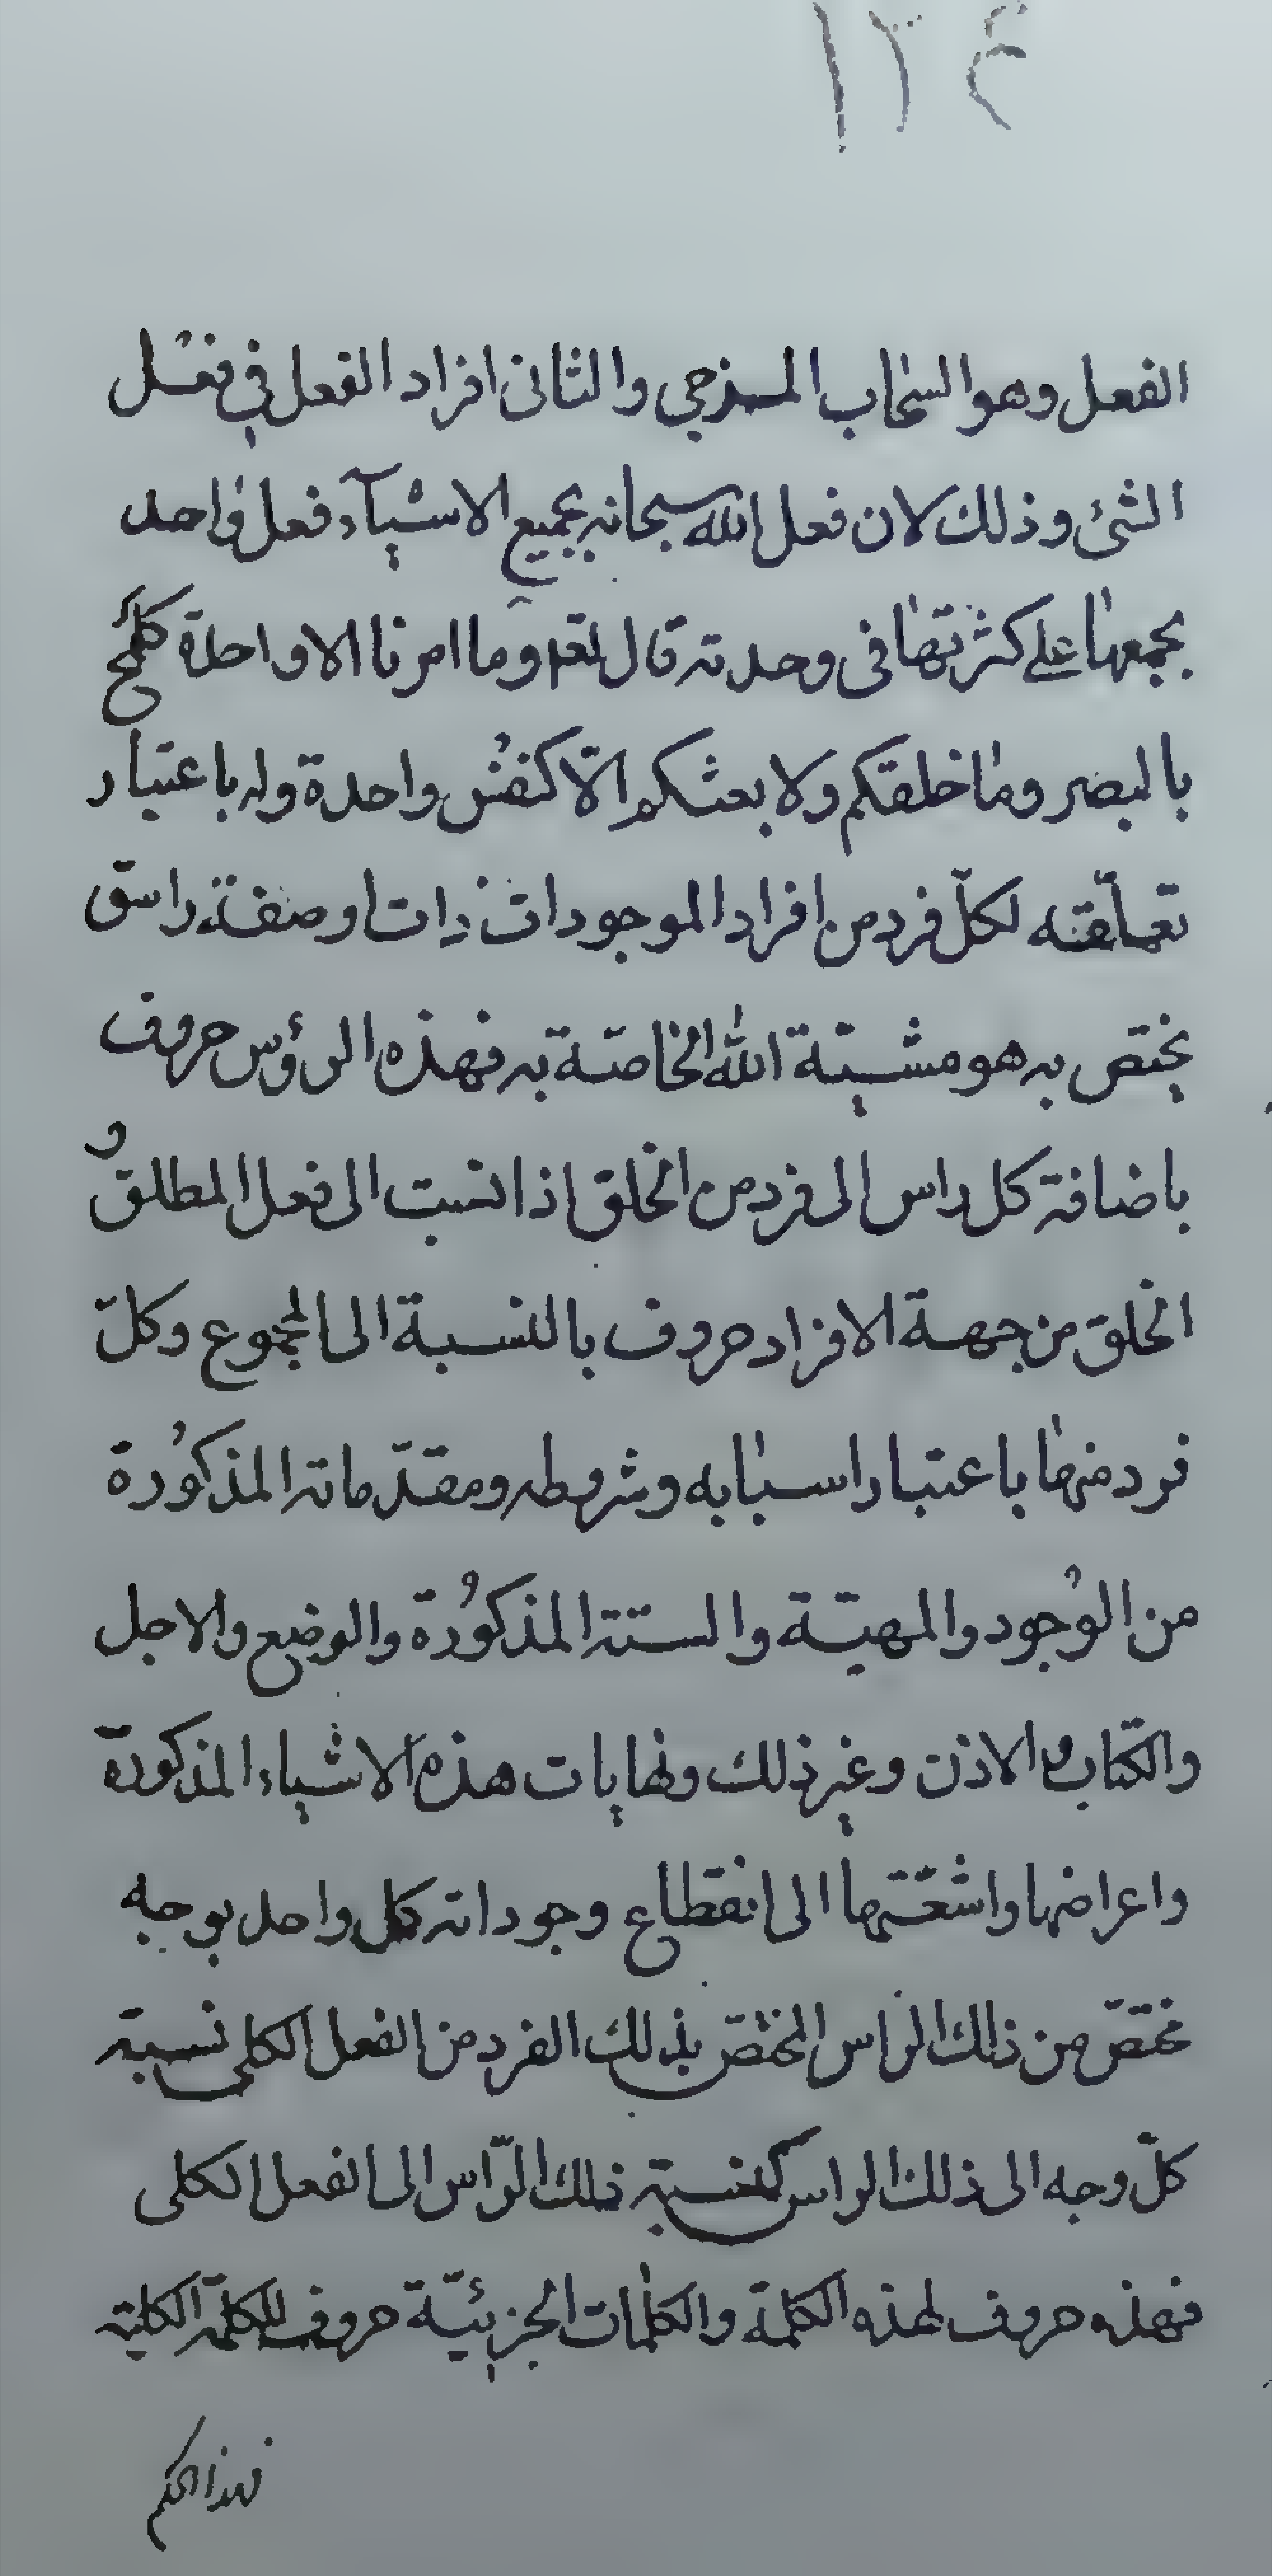 ١٢٤
الفعل وهو السحاب المزجي والثانى افراد الفعل في فعل
الشئ وذلك لان فعل الله سبحانه بجميع الاشيآء فعل واحد
بجمعها على كثرتها فى وحدته قال تعه وما امرنا الا واحدة كلمح
بالبصر وما خلقكم ولا بعثكم الّا كنفس واحدة وله باعتبار
تعلّقته لكلّ فرد من افراد الموجودات ذات او صفة راس
يختص به هو مشيّة الله الخاصّة به فهذه الرؤس حروف
باضافة كل راس الى فرد من الخلق اذا نسبت الى فعل المطلق و
الخلق من جهة الافراد حروف بالنسبة الى المجموع وكلّ
فرد منها باعتبار اسبابه وشروطه ومقدّماته المذكورة
من الوجود والمهيّة والستة المذكورة والوضع والاجل
والكتاب والاذن وغير ذلك ونهايات هذه الاشياء المذكورة
واعراضها واشعّتها الى انقطاع وجوداته كل واحد بوجه
مختصّ من ذلك الراس المختصّ بذلك الفرد من الفعل الكلى نسبة
كلّ وجه الى ذلك الراس كنسبة ذلك الرّاس الى الفعل الكلى
فهذه حروف لهذه الكلمة والكلمات الجزئيّة حروف للكلمة الكلية
فهذا حكم